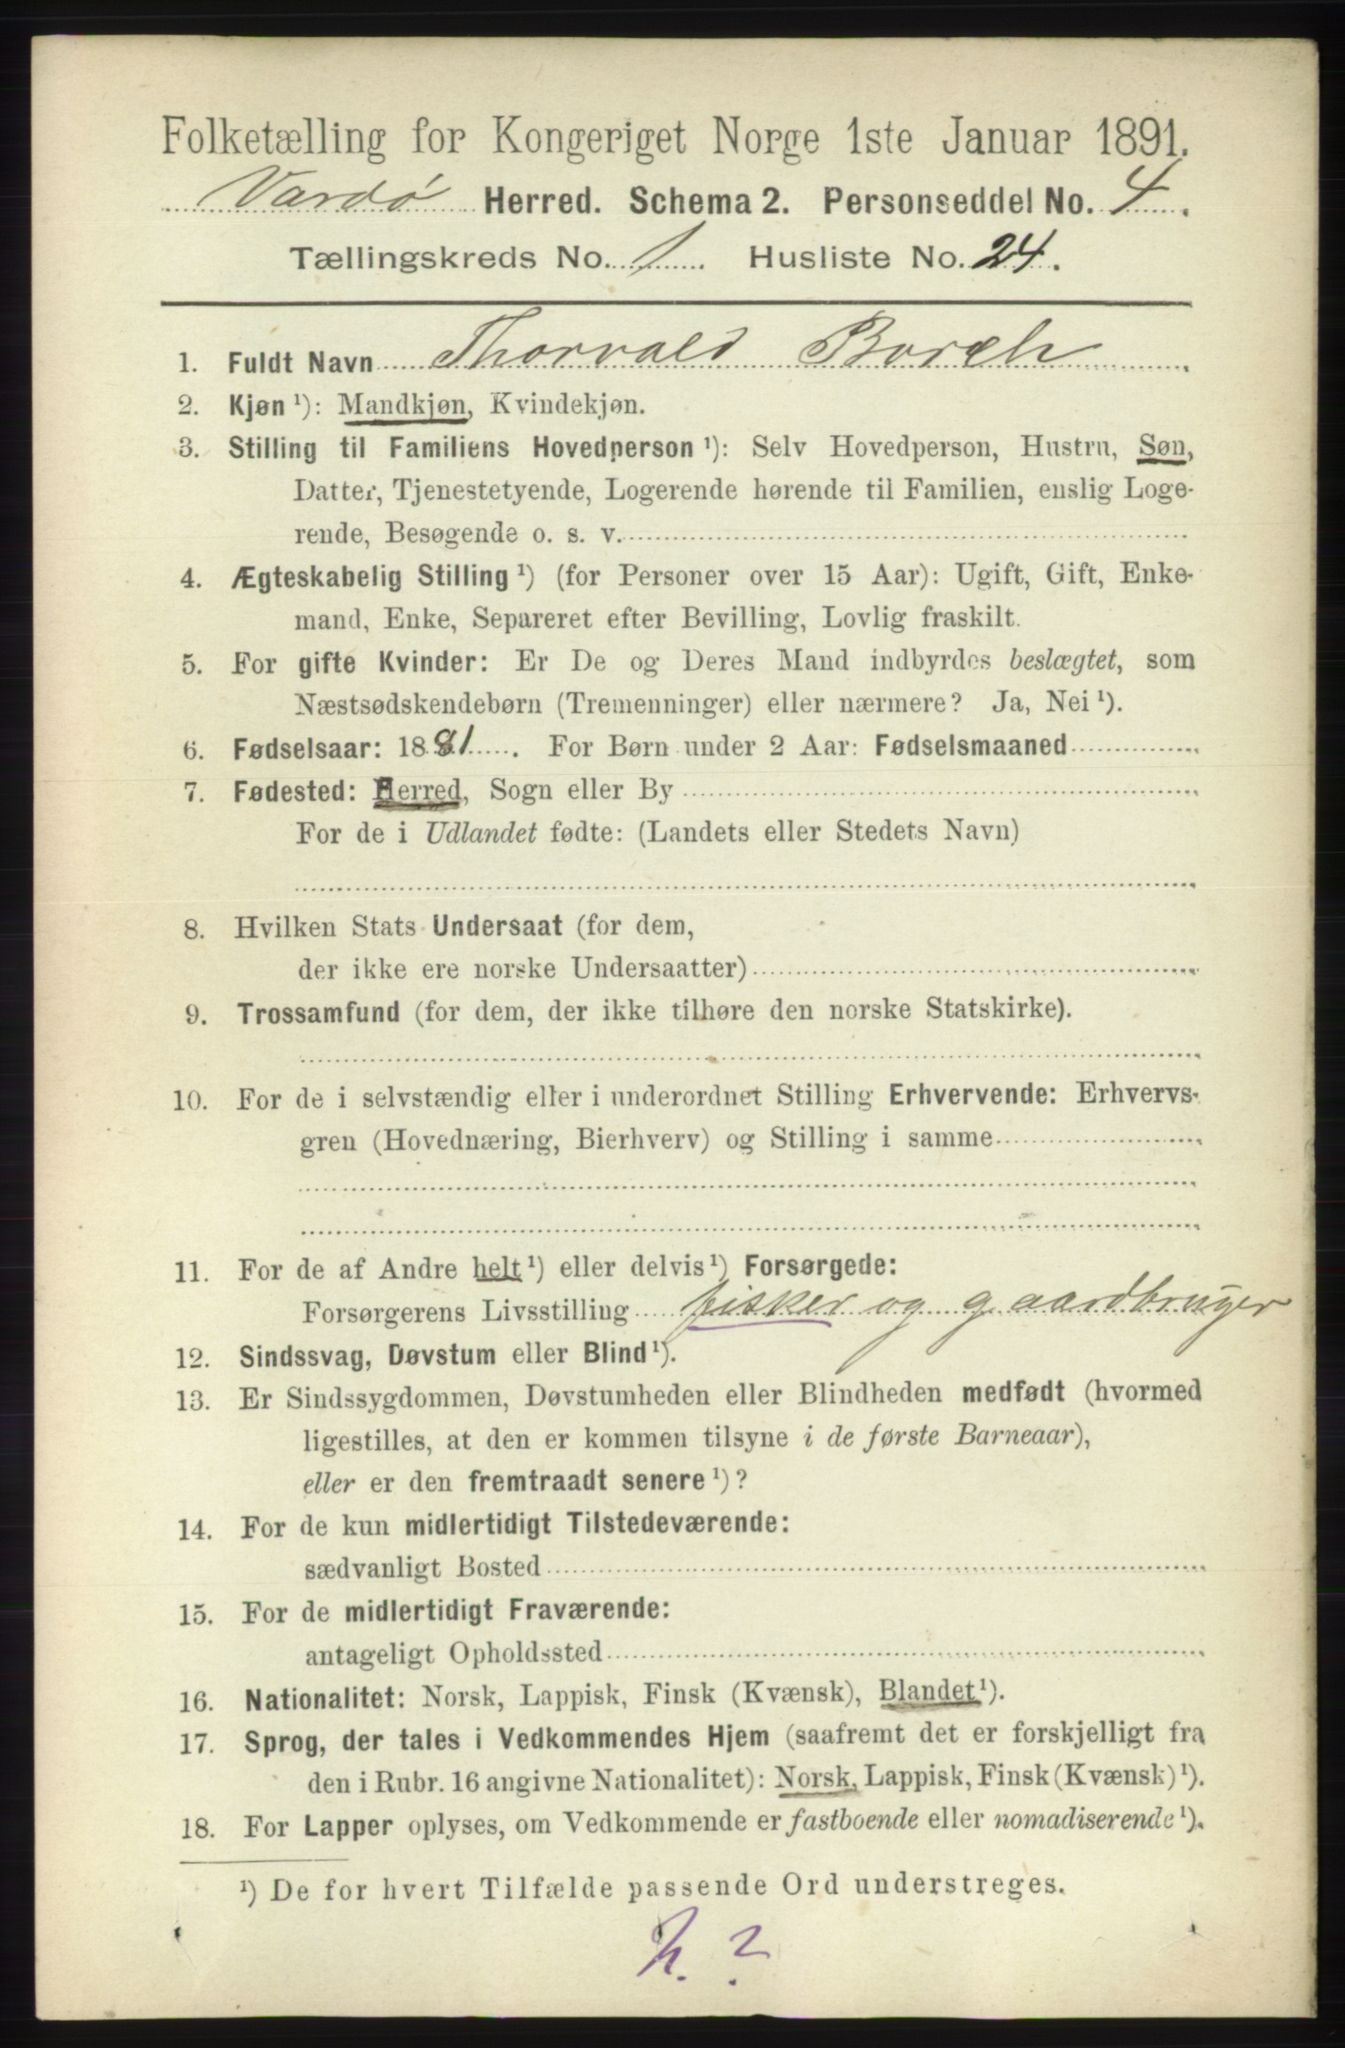 Folketælling for Kongeriget Norge 1ste Januar 1891.
Vardø Herred. Schema 2. Personseddel No. 4.
Tællingskreds No. 1. Husliste No. 24.
1. Fuldt Navn Thorvald Borch
2. Kjøn ¹): Mandkjøn, Kvindekjøn.
3. Stilling til Familiens Hovedperson ¹): Selv Hovedperson, Hustru, Søn,
Datter, Tjenestetyende, Logerende hørende til Familien, enslig Loge-
rende, Besøgende o. s. v.
4. Ægteskabelig Stilling ¹) (for Personer over 15 Aar): Ugift, Gift, Enke-
mand, Enke, Separeret efter Bevilling, Lovlig fraskilt.
5. For gifte Kvinder: Er De og Deres Mand indbyrdes beslægtet, som
Næstsødskendebørn (Tremenninger) eller nærmere? Ja, Nei ¹).
6. Fødselsaar: 1881. For Børn under 2 Aar: Fødselsmaaned
7. Fødested: Herred, Sogn eller By
For de i Udlandet fødte: (Landets eller Stedets Navn)
8. Hvilken Stats Undersaat (for dem,
der ikke ere norske Undersaatter)
9. Trossamfund (for dem, der ikke tilhøre den norske Statskirke).
10. For de i selvstændig eller i underordnet Stilling Erhvervende: Erhvervs-
gren (Hovednæring, Bierhverv) og Stilling i samme
11. For de af Andre helt ¹) eller delvis ¹) Forsørgede:
Forsørgerens Livsstilling fisker og gaardbruger
12. Sindssvag, Døvstum eller Blind ¹).
13. Er Sindssygdommen, Døvstumheden eller Blindheden medfødt (hvormed
ligestilles, at den er kommen tilsyne i de første Barneaar),
eller er den fremtraadt senere ¹)?
14. For de kun midlertidigt Tilstedeværende:
sædvanligt Bosted
15. For de midlertidigt Fraværende:
antageligt Opholdssted
16. Nationalitet: Norsk, Lappisk, Finsk (Kvænsk), Blandet ¹).
17. Sprog, der tales i Vedkommendes Hjem (saafremt det er forskjelligt fra
den i Rubr. 16 angivne Nationalitet): Norsk, Lappisk, Finsk (Kvænsk) ¹).
18. For Lapper oplyses, om Vedkommende er fastboende eller nomadiserende ¹).
¹) De for hvert Tilfælde passende Ord understreges.